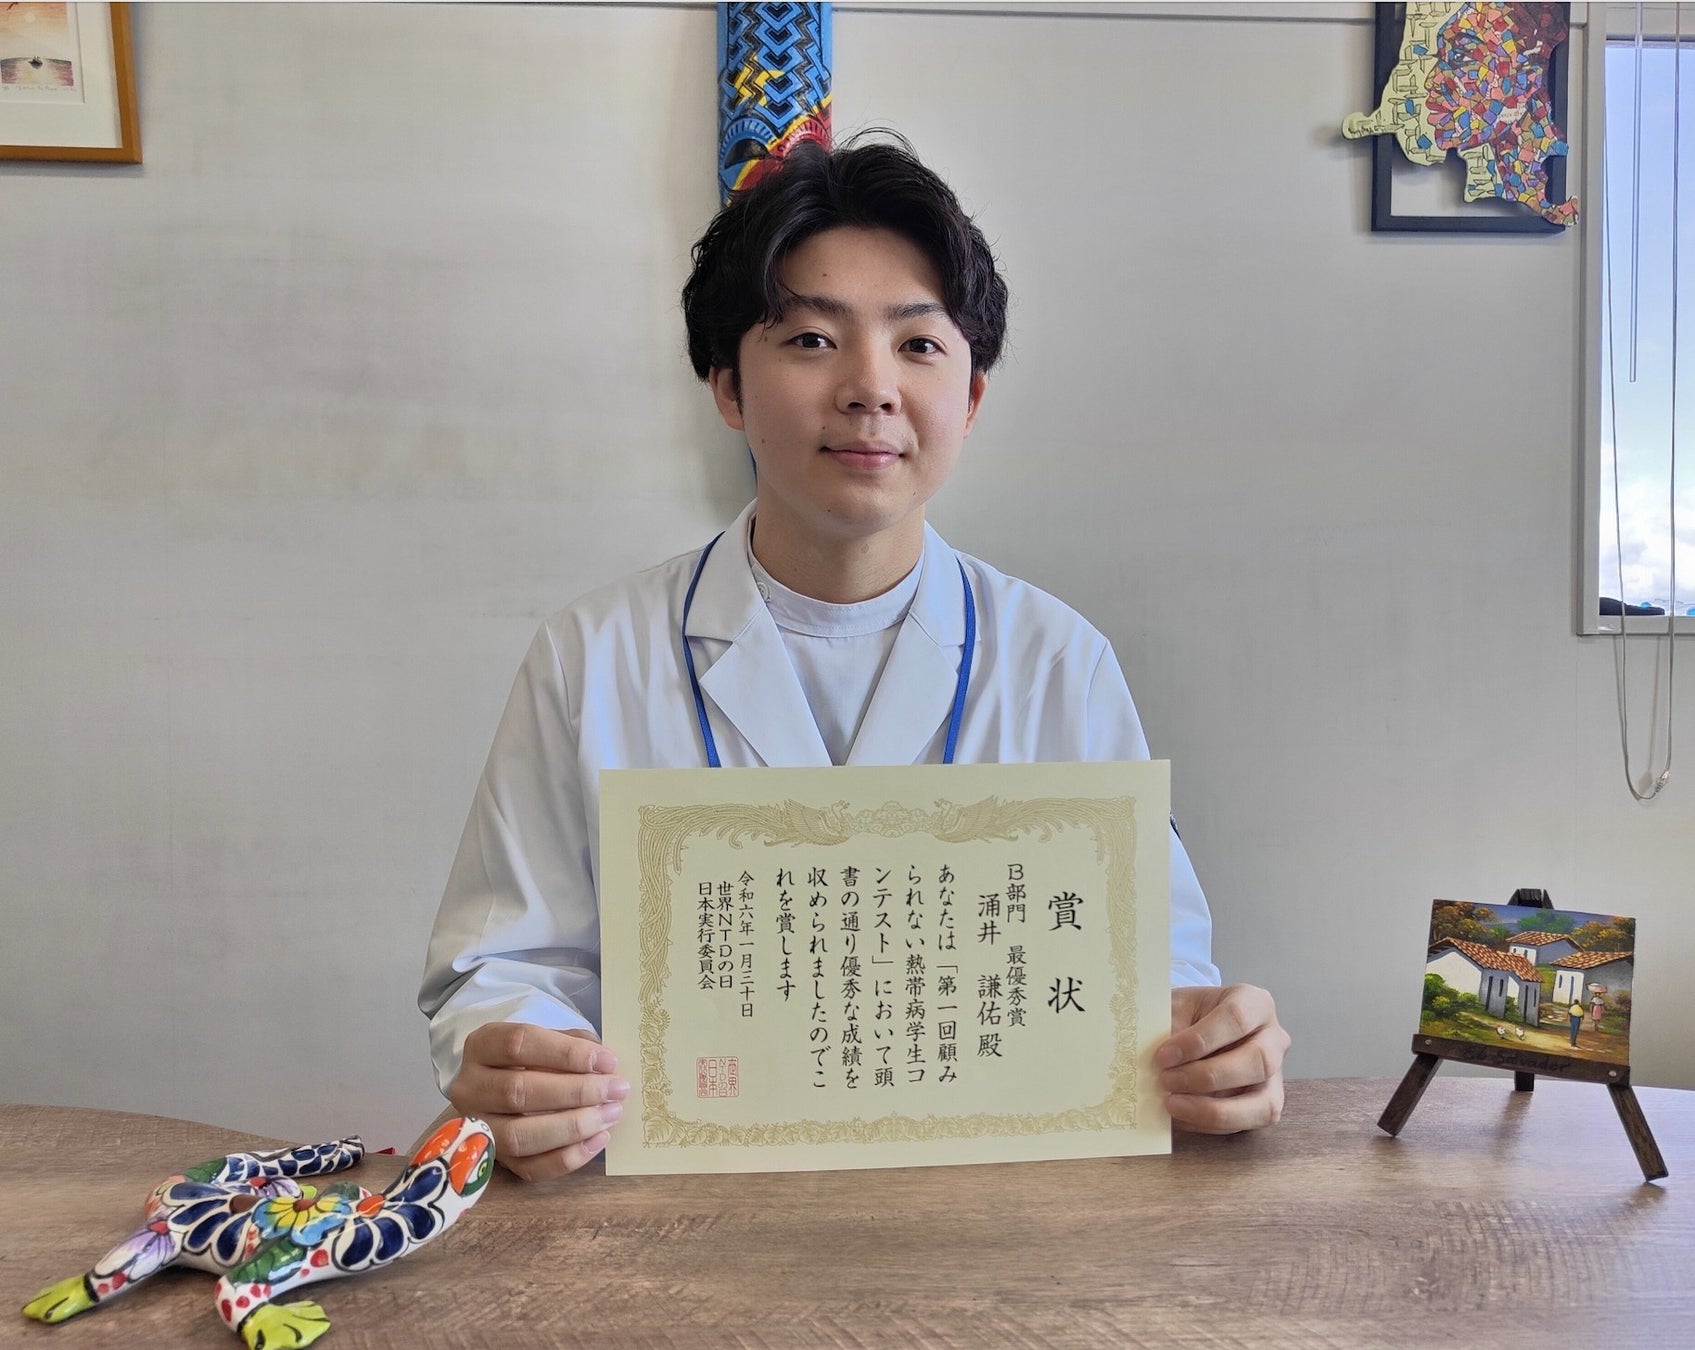 賞状
B部門 最優秀賞
涌井 謙佑 殿
あなたは「第一回顧み
られない熱帯病学生コ
ンテスト」において頭
書の通り優秀な成績を
収められましたのでこ
れを賞します
令和六年一月三十日
世界NTDの日
日本実行委員会
El Salvador